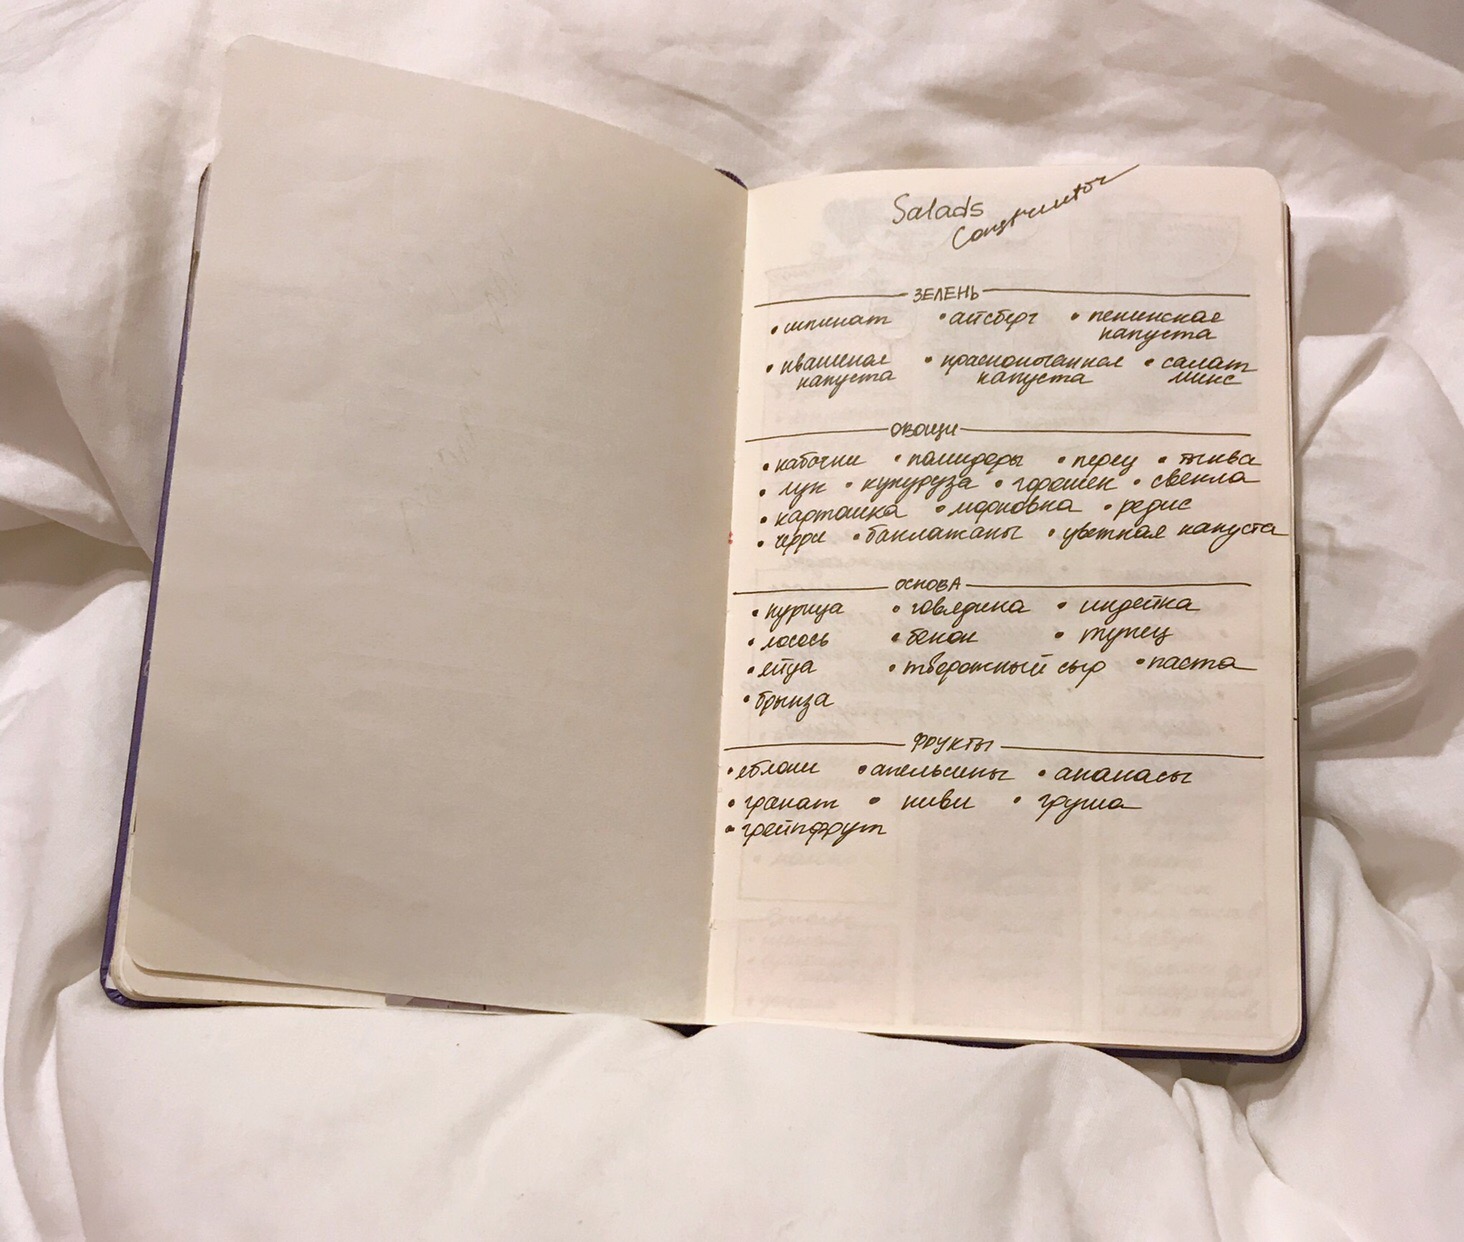 Salads
Constructor
ЗЕЛЕНЬ
• шпинат • айсберг • пекинская
капуста
• квашеная • краснокочанная • салат
капуста капуста микс
ОВОЩИ
• кабачки • помидоры • перец • тыква
• лук • кукуруза • горошек • свекла
• картошка • морковка • редис
• черри • баклажаны • цветная капуста
ОСНОВА
• курица • говядина • индейка
• лосось • бекон • тунец
• яйца • творожный сыр • паста
• брынза
ФРУКТЫ
• яблоки • апельсины • ананасы
• гранат • киви • груша
• грейпфрут